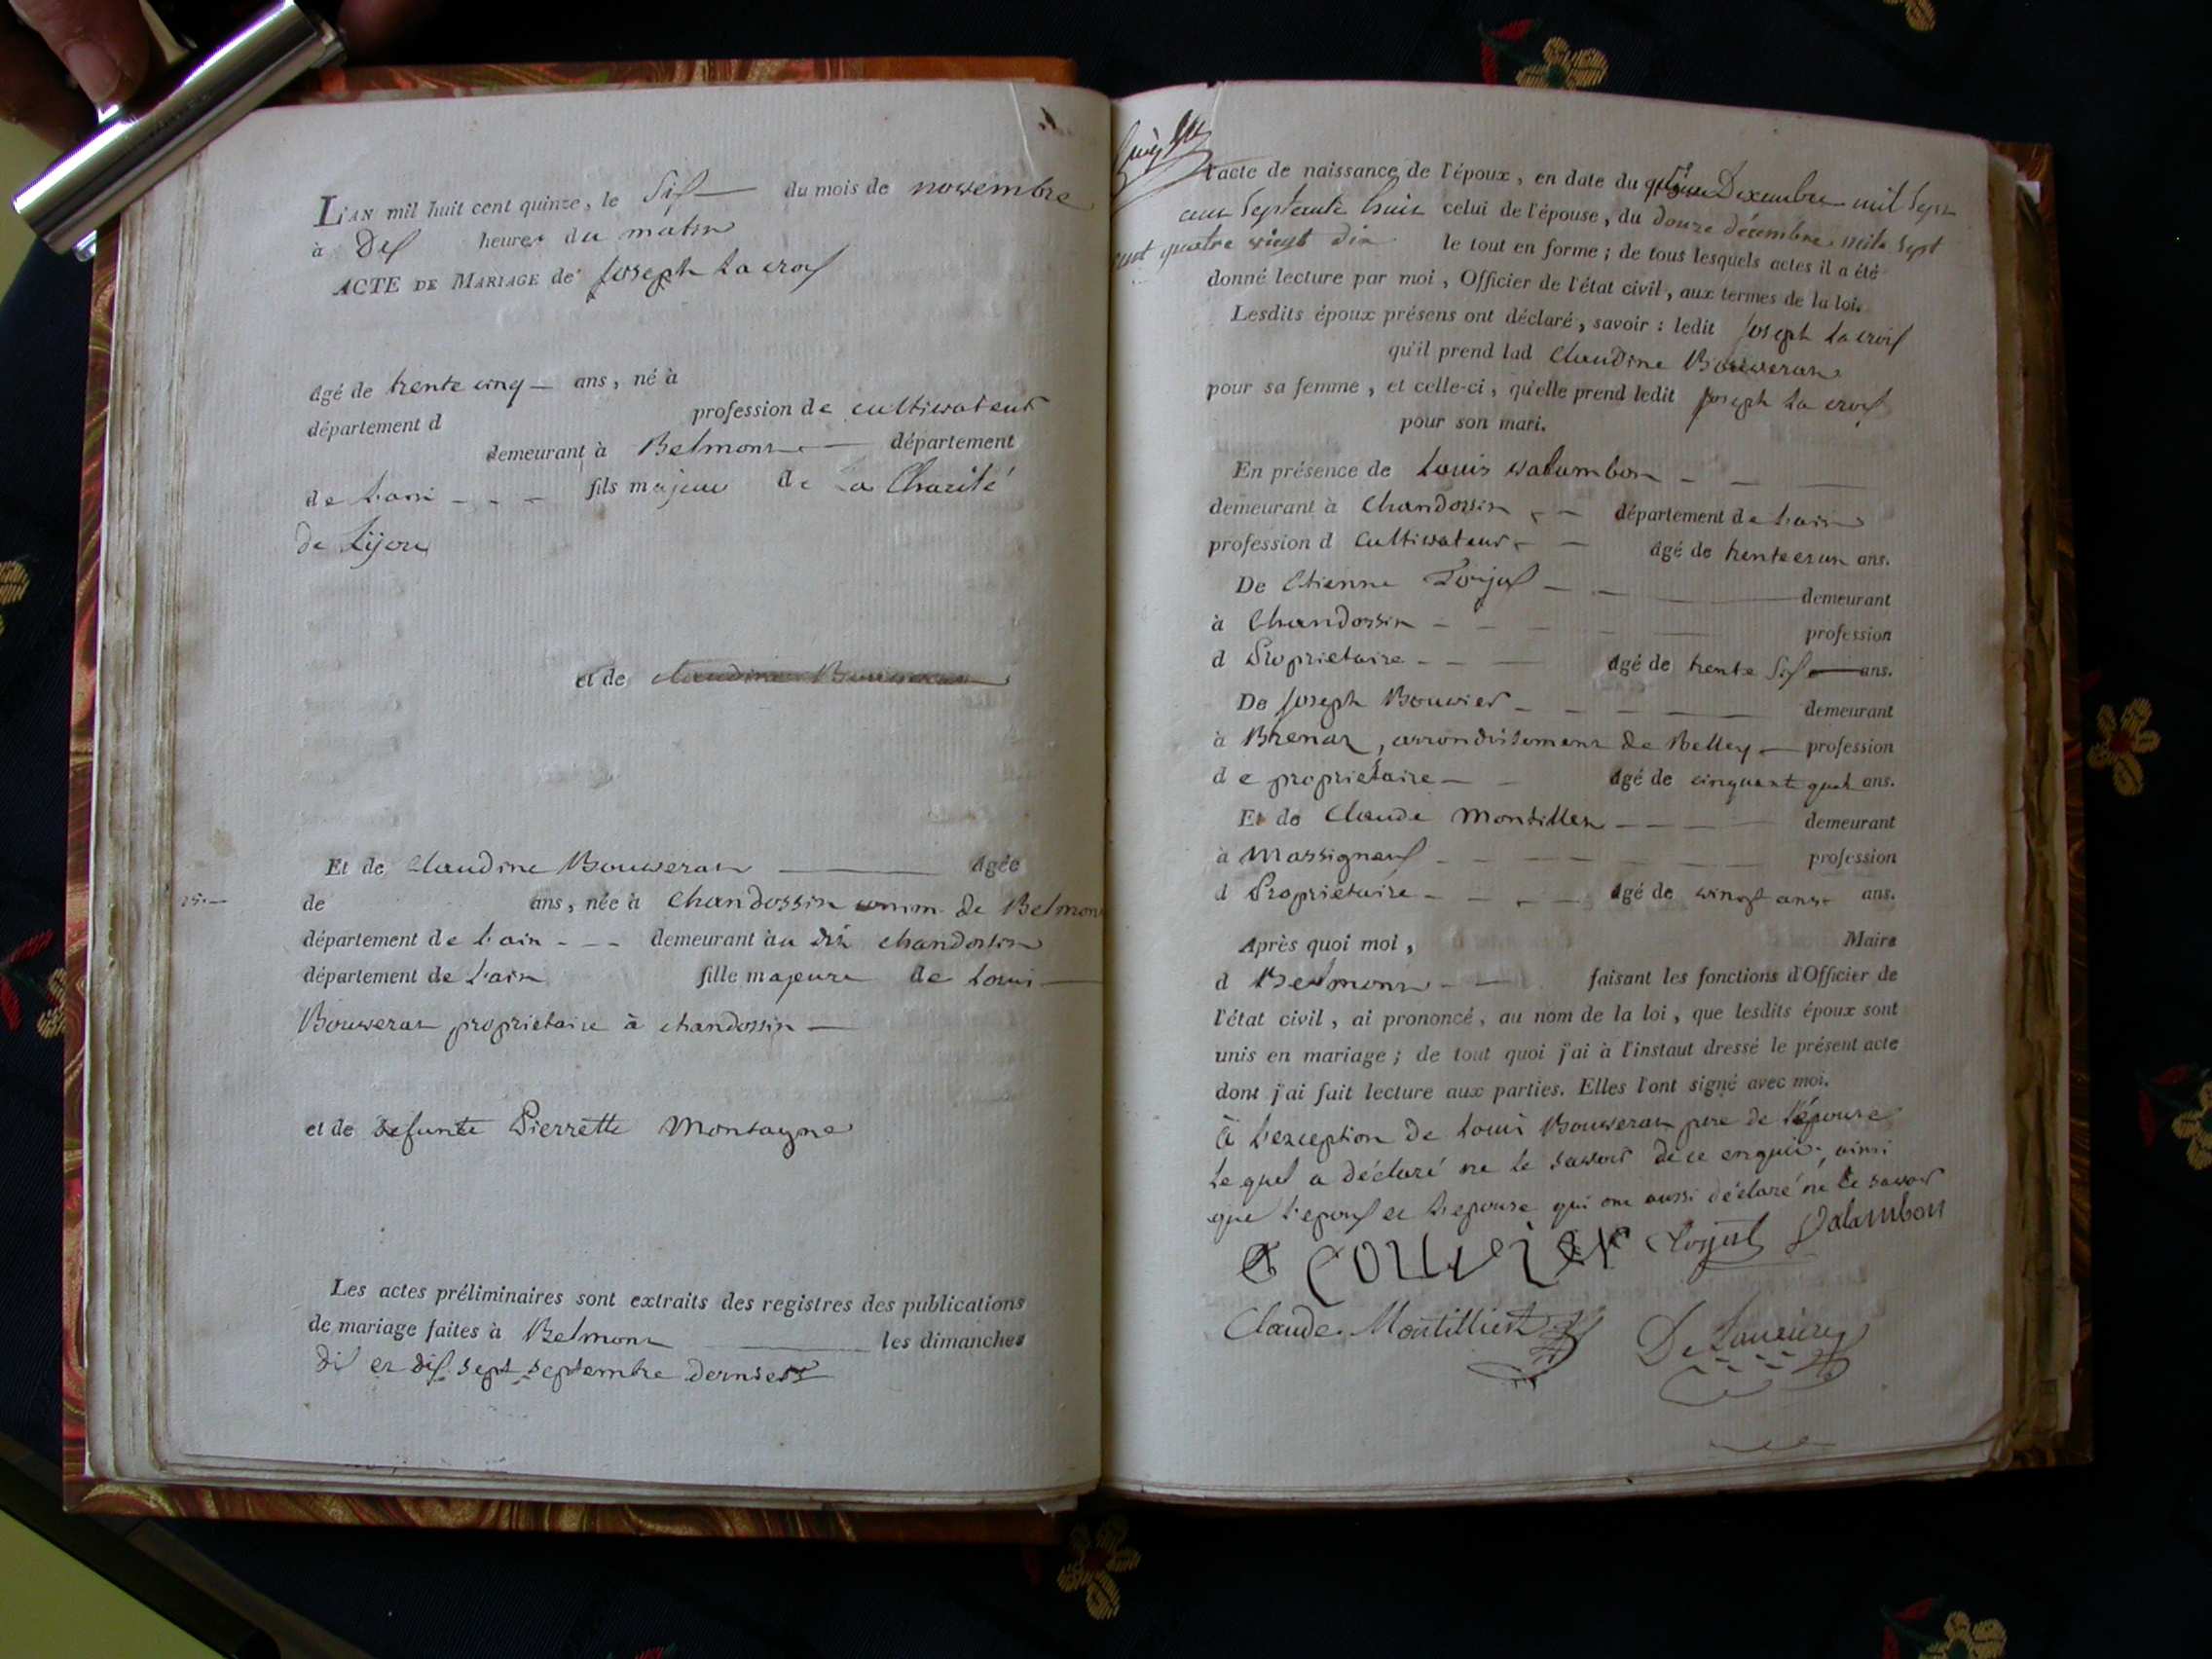 L'AN mil huit cent quinze, le Six du mois de novembre
à Dex heures du matin
ACTE DE MARIAGE de Joseph La croix
âgé de trente cinq ans, né à
département d profession de cultivateur
demeurant à Belmont département
de L'ain fils majeur de La Charité
de Lijon
et de Claudine Bouveran
Et de Claudine Bouveran Agée
25
de ans, née à Chandossin comm. de Belmon
département de L'ain demeurant au dit chandossin
département de L'ain fille majeure de Loui
Bouveran propriétaire à chandossin
et de defunte Pierrette Montagne
Les actes préliminaires sont extraits des registres des publications
de mariage faites à Belmont les dimanches
dix et dix sept septembre derniers
l'acte de naissance de l'époux, en date du Decembre mil sept
cent septante huit celui de l'épouse, du douze décembre mil sept
cent quatre vingt dix le tout en forme ; de tous lesquels actes il a été
donné lecture par moi, Officier de l'état civil, aux termes de la loi.
Lesdits époux présens ont déclaré, savoir : ledit Joseph La croix
qu'il prend lad Claudine Bouveran
pour sa femme, et celle-ci, qu'elle prend ledit Joseph La croix
pour son mari.
En présence de Louis valambon
demeurant à Chandossin département de L'ain
profession d Cultivateur âgé de trente et un ans.
De Etienne demeurant
à Chandossin profession
d Propriétaire âgé de trente Six ans.
De Joseph Bouvier demeurant
à Brenaz, arrondissement de Belley profession
de propriétaire âgé de cinquante quat ans.
Et de Claude Montillet demeurant
à Massigneux profession
d Propriétaire âgé de vingt ans ans.
Après quoi moi, Maire
d Belmont faisant les fonctions d'Officier de
l'état civil, ai prononcé, au nom de la loi, que lesdits époux sont
unis en mariage ; de tout quoi j'ai à l'instaut dressé le présent acte
dont j'ai fait lecture aux parties. Elles l'ont signé avec moi.
à L'exception de Loui Bouveran pere de L'épouse
Le quel a déclaré ne Le savoir de ce enquis, ainsi
que L'epoux et L'epouse qui ont aussi déclaré ne Le savoir
Valambon
Claude Montillet